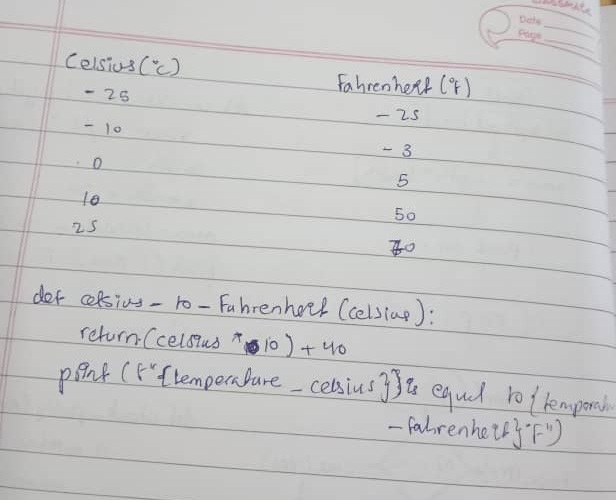 classmate
Date
Page
Celsius (°C) Fahrenheit (°F)
- 25 - 25
- 10 - 3
0 5
10 50
25 70
def celsius - to - Fahrenheit (celsius):
return (celsius * 10) + 40
print (F"{temperature - celsius}} is equal to {temperatu
- fahrenheit}°F")